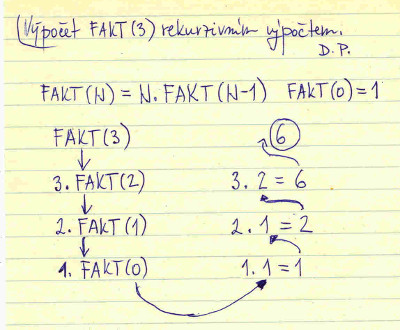 Výpočet FAKT(3) rekurzivním výpočtem.
D.P.
FAKT(N) = N.FAKT(N-1) FAKT(0)=1
FAKT(3) 6
3.FAKT(2) 3.2=6
2.FAKT(1) 2.1=2
1.FAKT(0) 1.1=1